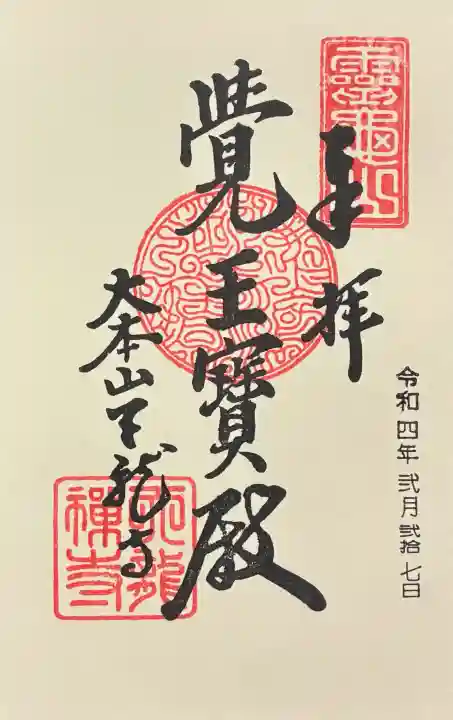 靈龜山
奉拝
令和四年弐月弐拾七日
覺王寶殿
大本山天龍寺
天龍
禅寺